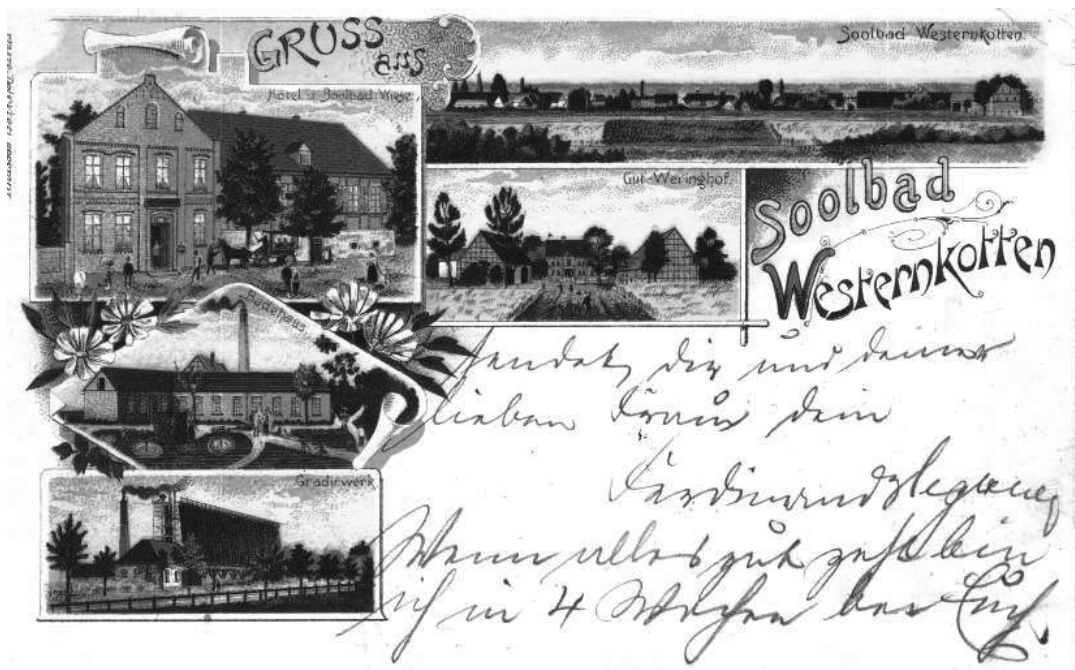 GRUSS
aus
Soolbad Westernkotten.
Hôtel u. Soolbad Wiese
Gut Weringhof.
Soolbad
Westernkotten
Badehaus.
Gradirwerk
sendet dir und deiner
lieben Frau dein
Ferdinand
Wenn alles gut geht bin
ich in 4 Wochen bei Euch.